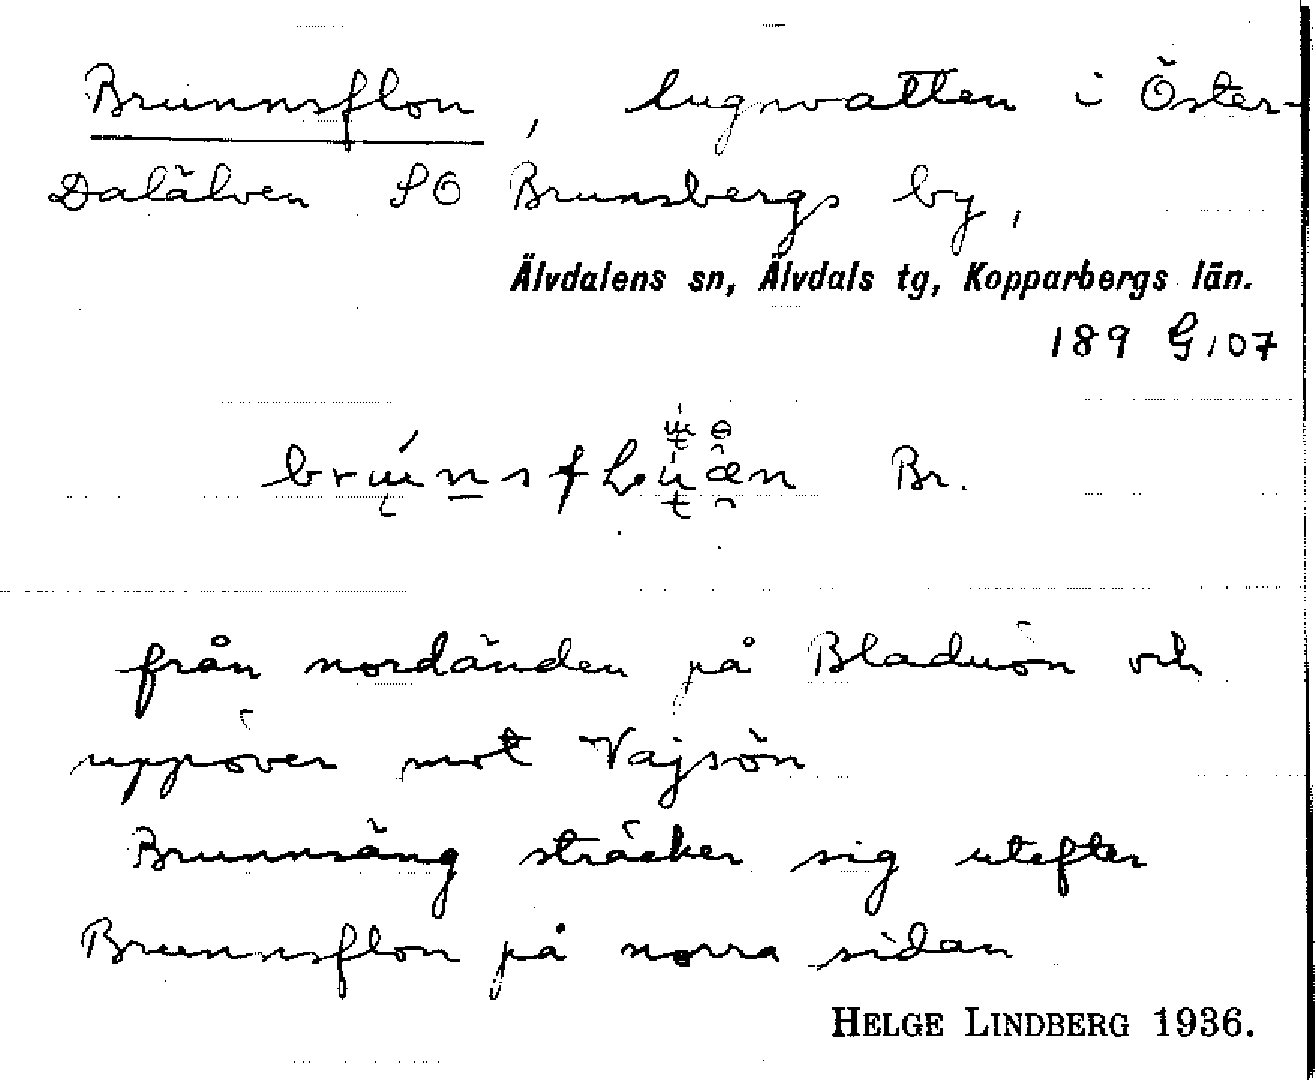 Brunnsflon, lugnvatten i Öster-
Dalälven SO Brunsbergs by,
Älvdalens sn, Älvdals tg, Kopparbergs län.
189 G 107
Br.
från nordänden på Bladuön och
uppöver mot Vajsön
Brunnsäng sträcker sig utefter
Brunnsflon på norra sidan
HELGE LINDBERG 1936.